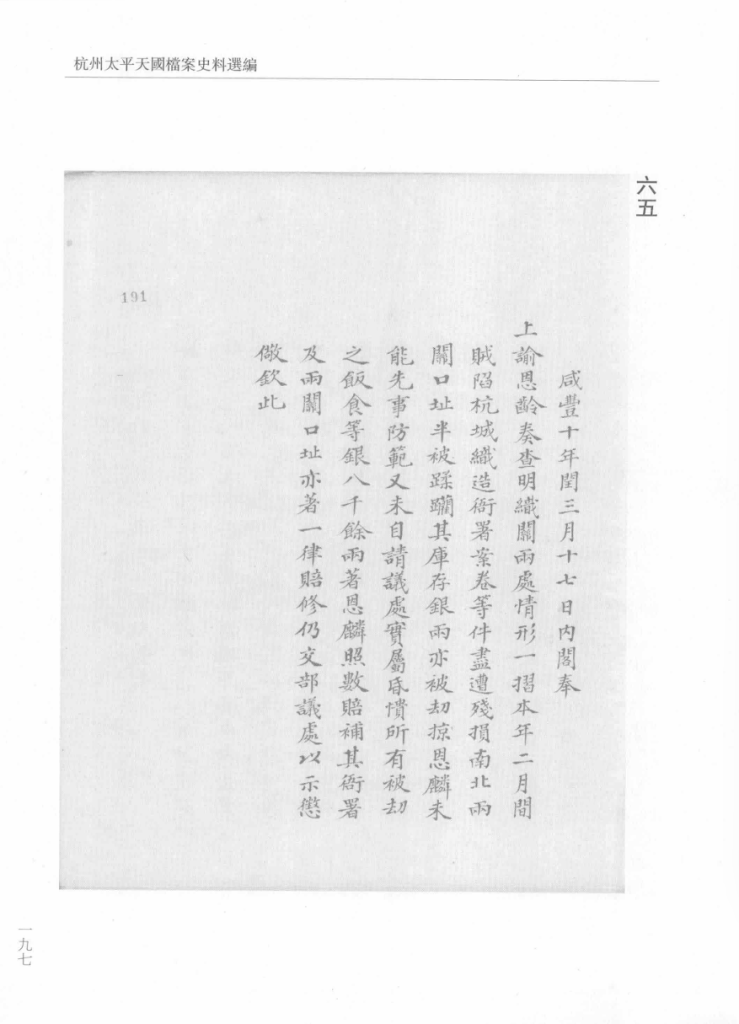 杭州太平天國檔案史料選編
六五
咸豐十年閏三月十七日內閣奉
上諭恩齡奏查明織關兩處情形一摺本年二月間
賊陷杭城織造衙署案卷等件盡遭殘損南北兩
關口址半被蹂躪其庫存銀兩亦被刧掠恩麟未
能先事防範又未自請議處實屬昏憒所有被刧
之飯食等銀八千餘兩著恩麟照數賠補其衙署
及兩關口址亦著一律賠修仍交部議處以示懲
儆欽此
191
一九七